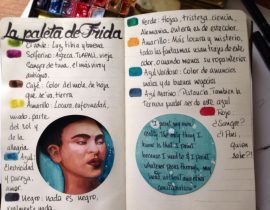 La paleta de Frida
El verde: Luz tibia y buena
Solferino: Azteca. TLAPALI, vieja
Sangre de tuna, el mas vivo y
antiguo.
Café: Color de mole, de hoja
que se va, tierra
Amarillo: Locura, enfermedad,
miedo, parte
del sol y
de la
alegría.
Azul:
Electricidad
y Pureza,
amor.
Negro: nada es negro,
realmente nada.
Verde: Hojas, tristeza, ciencia,
Alemania entera es de este color.
Amarillo: Más locura y misterio,
todos los fantasmas usan trajes de este
color, o cuando menos su ropa interior.
Azul Verdoso: Color de anuncios
malos y de buenos negocios
Azul Marino: Distancia. También la
ternura puede ser de este azul
Rojo:
¿Sangre?
¿Pues...
Quien
sabe?!
I paint my own
reality. The only thing I
know is that I paint
because I need to & I paint
whatever passes through my
head without any other
consideration